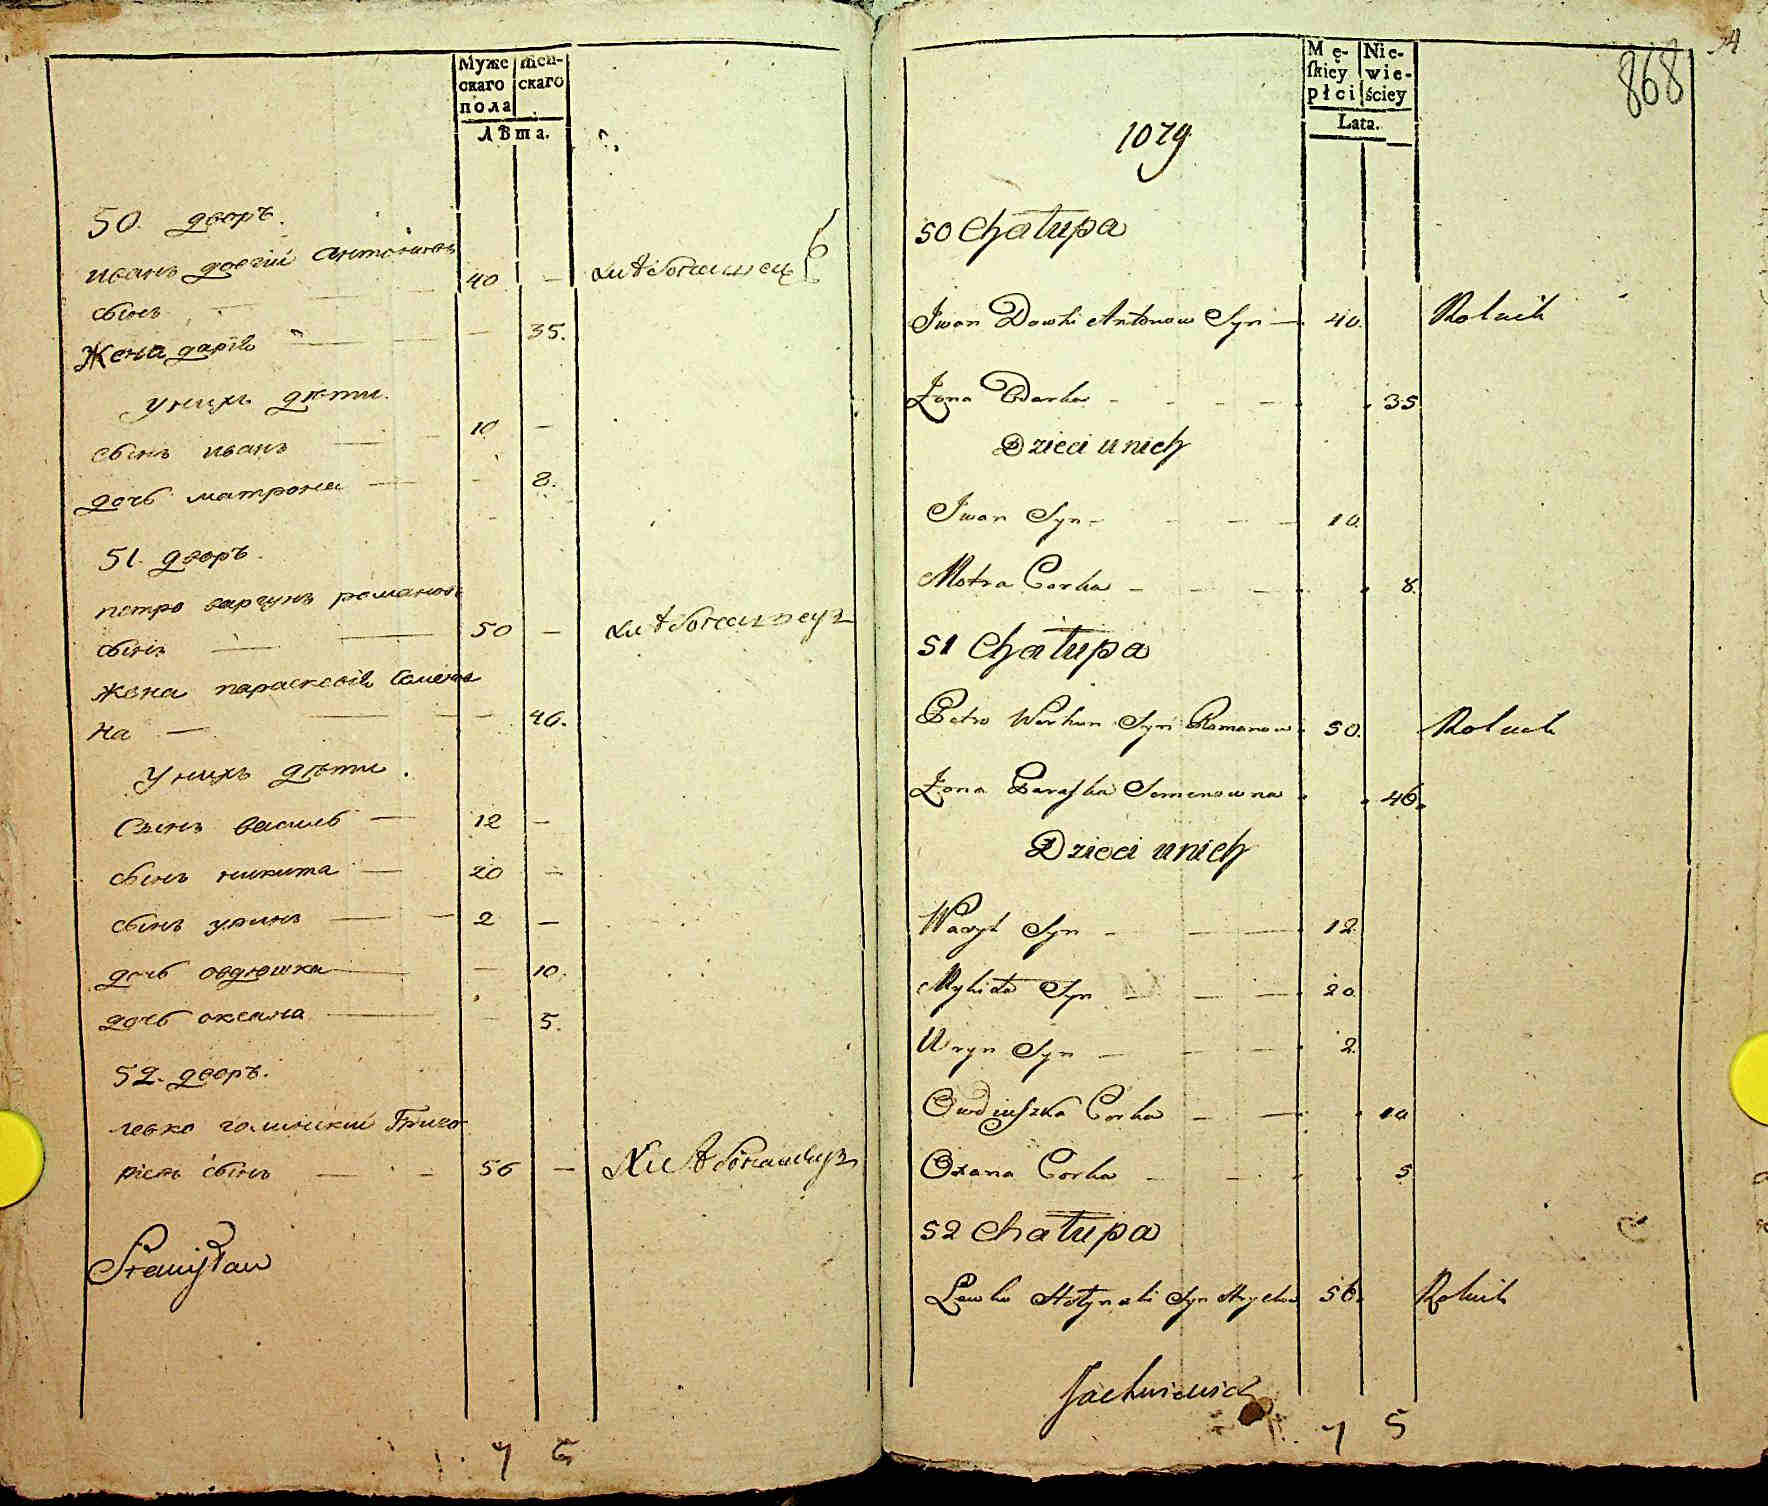 Муже
скаго
пола
Жен-
скаго
лѣта.
50. дворъ.
иванъ довгій антоновъ
сынъ — 40 — хлѣбопашецъ
Жена дарія — 35.
у нихъ дѣти.
сынъ иванъ — 10 —
дочь матрона — 8.
51. дворъ.
петро вархунъ романовъ
сынъ — 50 — хлѣбопашецъ
жена параскевія семено
на — 46.
у нихъ дѣти.
сынъ василь — 12 —
сынъ никита — 20 —
сынъ уринъ — 2 —
дочь овдюшка — 10.
дочь оксана — 5.
52. дворъ.
левко голинскій Григо
ріевъ сынъ — 56 — Хлѣбопашецъ
Stanisław
7 5
868
Mę-
ſkiey
płci
Nie-
wie-
ściey
Lata.
1079
50 Chałupa
Iwan Dowhi Antonow Syn — 40. Rolnik
Żona Darka - - - - 35
Dzieci u nich
Iwan Syn - - - - 10.
Motra Corka - - - - 8.
51 Chałupa
Petro Warhun Syn Romanow 50. Rolnik
Żona Paraſka Semenowna 46.
Dzieci u nich
Wasyl Syn - - - 12.
Mykita Syn - - - 20
Uryn Syn - - - 2.
Owdiuſzka Corka - - 10
Oxana Corka - - - 5
52 Chałupa
Lewko Hołynski Syn Hryckow 56. Rolnik
Jachniewicz
7 5